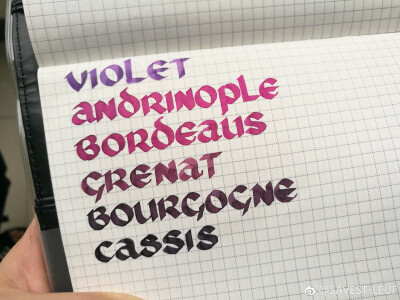 VIOLET
ANDRINOPLE
BORDEAUS
GRENAT
BOURGOGNE
CASSIS